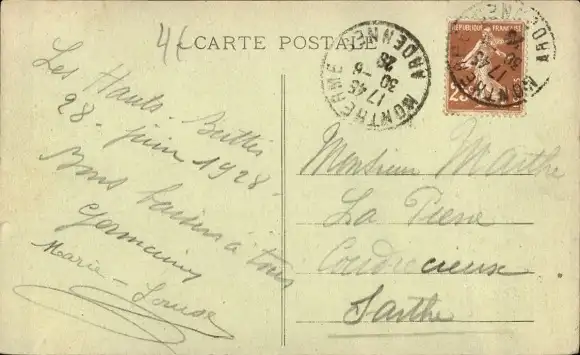 44
CARTE POSTALE
Les Hauts-Buttés
28 juin 1928.
Bons baisers à tous
Germaine
Marie-Louise
MONTHERME
17 45
30 -6
28
ARDENNES
REPUBLIQUE FRANÇAISE
25
MONTHERME
17 45
30
ARD
Monsieur Marthe
La Pierre
Coudrecieux
Sarthe